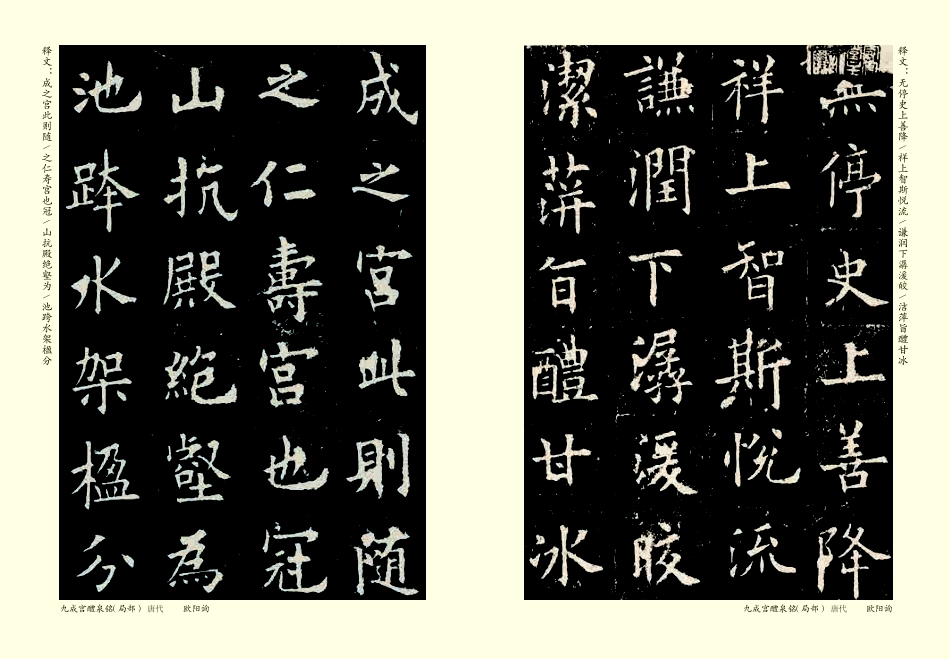 成之宮此則随
之仁壽宮也冠
山抗殿絶壑為
池跨水架楹分
释文：成之宫此则随／之仁寿宫也冠／山抗殿绝壑为／池跨水架楹分
九成宫醴泉铭（局部） 唐代 欧阳询
無停史上善降
祥上智斯悅流
謙潤下潺湲皎
潔萍旨醴甘冰
释文：无停史上善降／祥上智斯悦流／谦润下潺湲皎／洁萍旨醴甘冰
九成宫醴泉铭（局部） 唐代 欧阳询